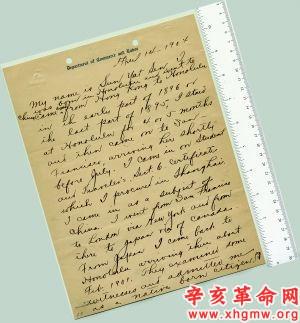 Department of Commerce and Labor
April 14, 1904
My name is Sun Yat Sen, I
was born in Honolulu and went to
China came from Hong Kong to Honolulu
in the early part of 1896 or
the last part of 1895. I staid
at Honolulu for 4 or 5 months
and then came on to San
Francisco, arriving here shortly
before July. I came in on Student
and Traveler's Sect. 6 certificate
which I procured in Shanghai.
I came in as a subject of
China. I went from San Francisco
to London via New York and from
there to Japan via of Canada.
From Japan I came back to
Honolulu arriving there about
Feb. 1901. They examined some
witnesses and admitted me
as a native born citizen
辛亥革命网
www.xhgmw.org